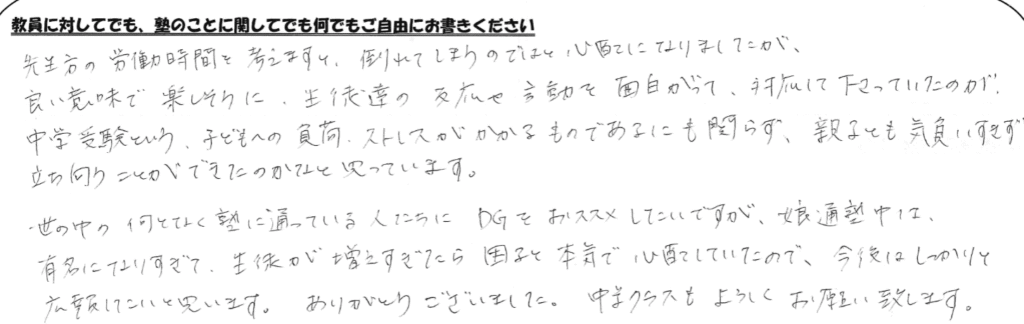 教員に対してでも、塾のことに関してでも何でもご自由にお書きください
先生方の労働時間を考えますと、倒れてしまうのではと心配になりましたが、
良い意味で楽しそうに、生徒達の反応や言動を面白がって、対応して下さっていたのが、
中学受験という、子どもへの負荷、ストレスがかかるものであるにも関らず、親子とも気負いすぎず
立ち向うことができたのかなと思っています。
世の中の何となく塾に通っている人たちにDGをおススメしたいですが、娘通塾中は、
有名になりすぎて、生徒が増えすぎたら困ると本気で心配していたので、今後はしっかりと
広報したいと思います。ありがとうございました。中学クラスもよろしくお願い致します。